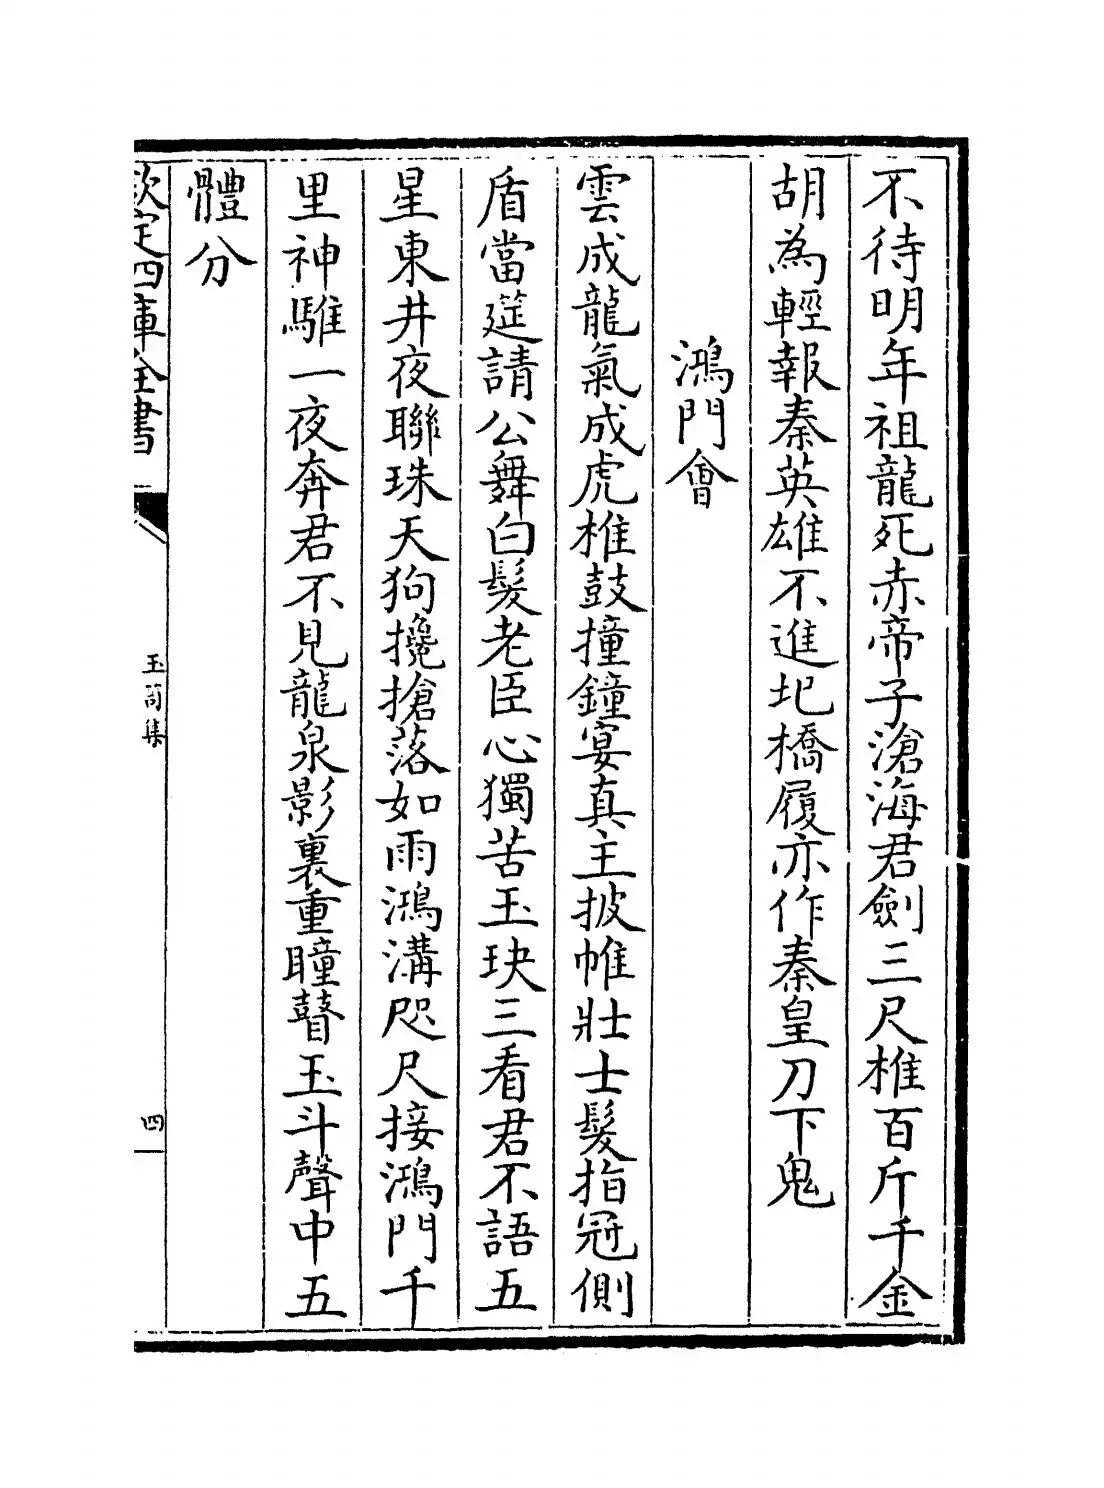 不待明年祖龍死赤帝子滄海君劍三尺椎百斤千金
胡為輕報秦英雄不進圯橋履亦作秦皇刀下鬼
鴻門會
雲成龍氣成虎椎鼓撞鐘宴真主披帷壯士髮指冠側
盾當筵請公舞白髮老臣心獨苦玉玦三看君不語五
星東井夜聯珠天狗攙搶落如雨鴻溝咫尺接鴻門千
里神騅一夜奔君不見龍泉影裏重瞳瞽玉斗聲中五
體分
欽定四庫全書
玉笥集
四